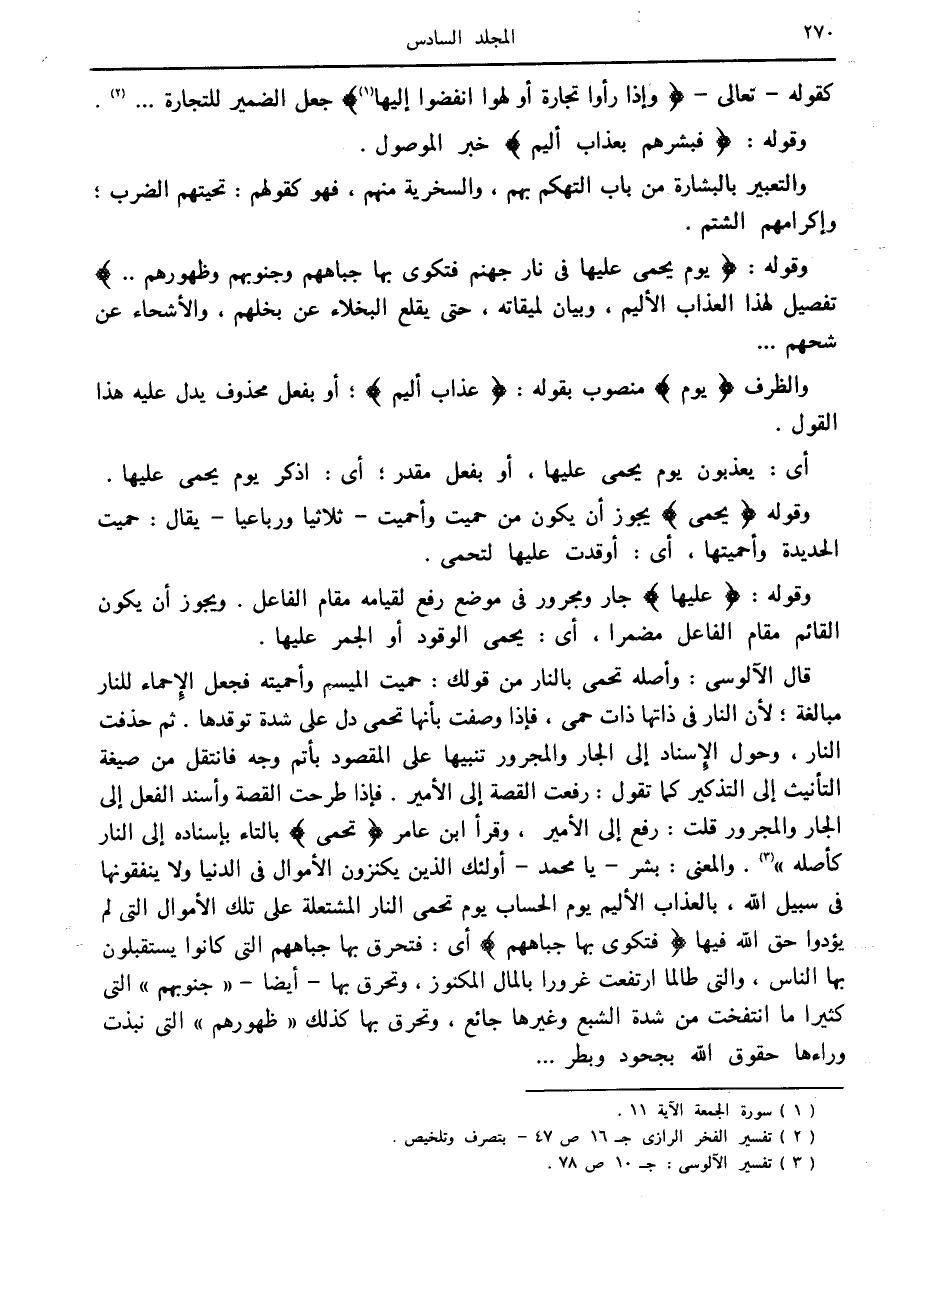 ٢٧٠
المجلد السادس
كقوله - تعالى - ﴿ وإذا رأوا تجارة أو لهوا انفضوا إليها(١)﴾ جعل الضمير للتجارة ... (٢) .
وقوله : ﴿ فبشرهم بعذاب أليم ﴾ خبر الموصول .
والتعبير بالبشارة من باب التهكم بهم ، والسخرية منهم ، فهو كقولهم : تحيتهم الضرب ؛
وإكرامهم الشتم .
وقوله : ﴿ يوم يحمى عليها فى نار جهنم فتكوى بها جباههم وجنوبهم وظهورهم .. ﴾
تفصيل لهذا العذاب الأليم ، وبيان لميقاته ، حتى يقلع البخلاء عن بخلهم ، والأشحاء عن
شحهم ...
والظرف ﴿ يوم ﴾ منصوب بقوله : ﴿ عذاب أليم ﴾ ؛ أو بفعل محذوف يدل عليه هذا
القول .
أى : يعذبون يوم يحمى عليها ، أو بفعل مقدر ؛ أى : اذكر يوم يحمى عليها .
وقوله ﴿ يحمى ﴾ يجوز أن يكون من حميت وأحميت - ثلاثيا ورباعيا - يقال : حميت
الحديدة وأحميتها ، أى : أوقدت عليها لتحمى .
وقوله : ﴿ عليها ﴾ جار ومجرور فى موضع رفع لقيامه مقام الفاعل . ويجوز أن يكون
القائم مقام الفاعل مضمرا ، أى : يحمى الوقود أو الجمر عليها .
قال الآلوسى : وأصله تحمى بالنار من قولك : حميت الميسم وأحميته فجعل الإحماء للنار
مبالغة ؛ لأن النار فى ذاتها ذات حمى ، فإذا وصفت بأنها تحمى دل على شدة توقدها . ثم حذفت
النار ، وحول الإسناد إلى الجار والمجرور تنبيها على المقصود بأتم وجه فانتقل من صيغة
التأنيث إلى التذكير كما تقول : رفعت القصة إلى الأمير . فإذا طرحت القصة وأسند الفعل إلى
الجار والمجرور قلت : رفع إلى الأمير ، وقرأ ابن عامر ﴿ تحمى ﴾ بالتاء بإسناده إلى النار
كأصله »(٣) . والمعنى : بشر - يا محمد - أولئك الذين يكنزون الأموال فى الدنيا ولا ينفقونها
فى سبيل الله ، بالعذاب الأليم يوم الحساب يوم تحمى النار المشتعلة على تلك الأموال التى لم
يؤدوا حق الله فيها ﴿ فتكوى بها جباههم ﴾ أى : فتحرق بها جباههم التى كانوا يستقبلون
بها الناس ، والتى طالما ارتفعت غرورا بالمال المكنوز ، وتحرق بها - أيضا - « جنوبهم » التى
كثيرا ما انتفخت من شدة الشبع وغيرها جائع ، وتحرق بها كذلك « ظهورهم » التى نبذت
وراءها حقوق الله بجحود وبطر ...
( ١ ) سورة الجمعة الآية ١١ .
( ٢ ) تفسير الفخر الرازى جـ ١٦ ص ٤٧ - بتصرف وتلخيص .
( ٣ ) تفسير الآلوسى : جـ ١٠ ص ٧٨ .